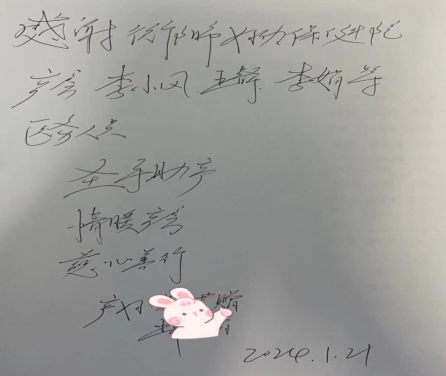 感谢 临汾市妇幼保健院
产房 李小凤 王静 李娟等
医务人员
圣手助产
情暖产房
慈心善行
产妇
2024.1.21